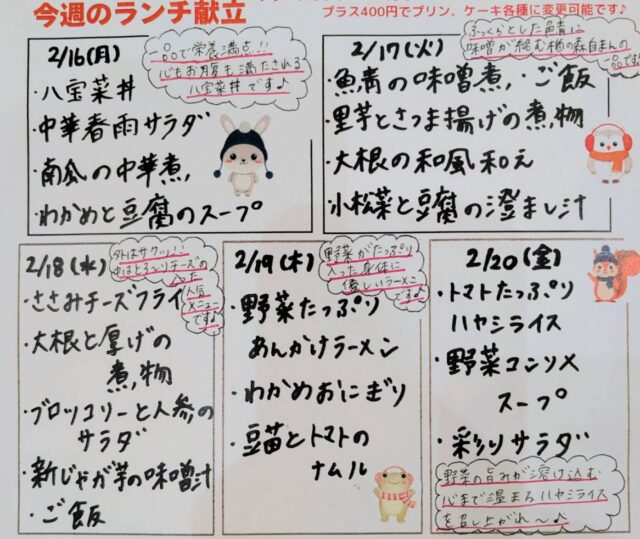 今週のランチ献立
プラス400円でプリン、ケーキ各種に変更可能です♪
2/16(月)
一品で栄養満点!!
心もお腹も満たされる
八宝菜丼です♪
・八宝菜丼
・中華春雨サラダ
・南瓜の中華煮
・わかめと豆腐のスープ
2/17(火)
ふっくらとした魚に
味噌が絡む楢の森自まんの
一品です
・魚青の味噌煮・ご飯
・里芋とさつま揚げの煮物
・大根の和風和え
・小松菜と豆腐の澄まし汁
2/18(水)
外はサクッ!!
中はとろ〜りチーズの
入った
人気
メニュー
です♪
・ささみチーズフライ
・大根と厚げの
煮物
・ブロッコリーと人参の
サラダ
・新じゃが芋の味噌汁
・ご飯
2/19(木)
野菜がたっぷり
入った身体に
優しいラーメン
です♪
・野菜たっぷり
あんかけラーメン
・わかめおにぎり
・豆苗とトマトの
ナムル
2/20(金)
・トマトたっぷり
ハヤシライス
・野菜コンソメ
スープ
・彩りサラダ
野菜の旨みが溶け込む
心まで温まるハヤシライス
を召し上がれ〜♪